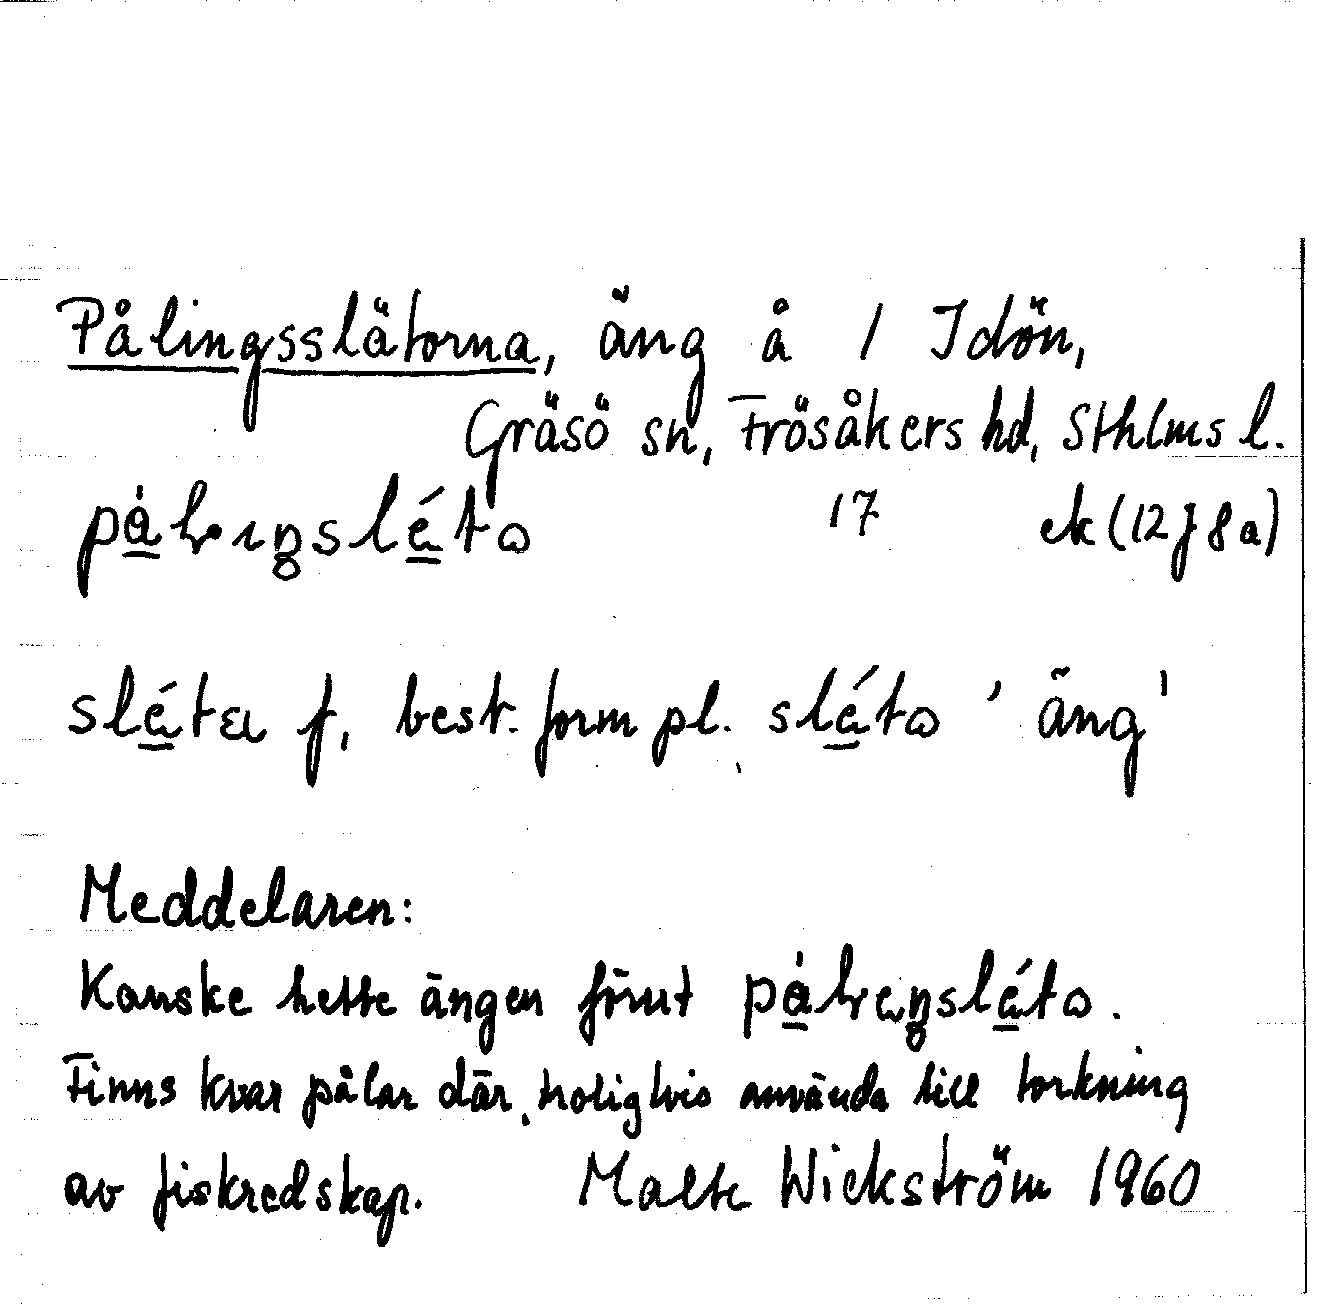 Pålingsslätorna, äng å 1 Idön,
Gräsö sn, Frösåkers hd, Sthlms l.
17 ek (12J8a)
f, best. form pl. 'äng'
Meddelaren:
Kanske hette ängen förut
Finns kvar pålar där, troligtvis använda till torkning
av fiskredskap. Malte Wickström 1960